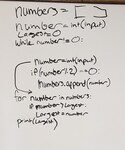 numbers = [ ]
number = int(input)
Largest = 0
while number != 0:
number = int(input)
if (number % 2) == 0:
numbers.append(number)
for number in numbers:
if number > largest:
Largest = number
print(Largest)